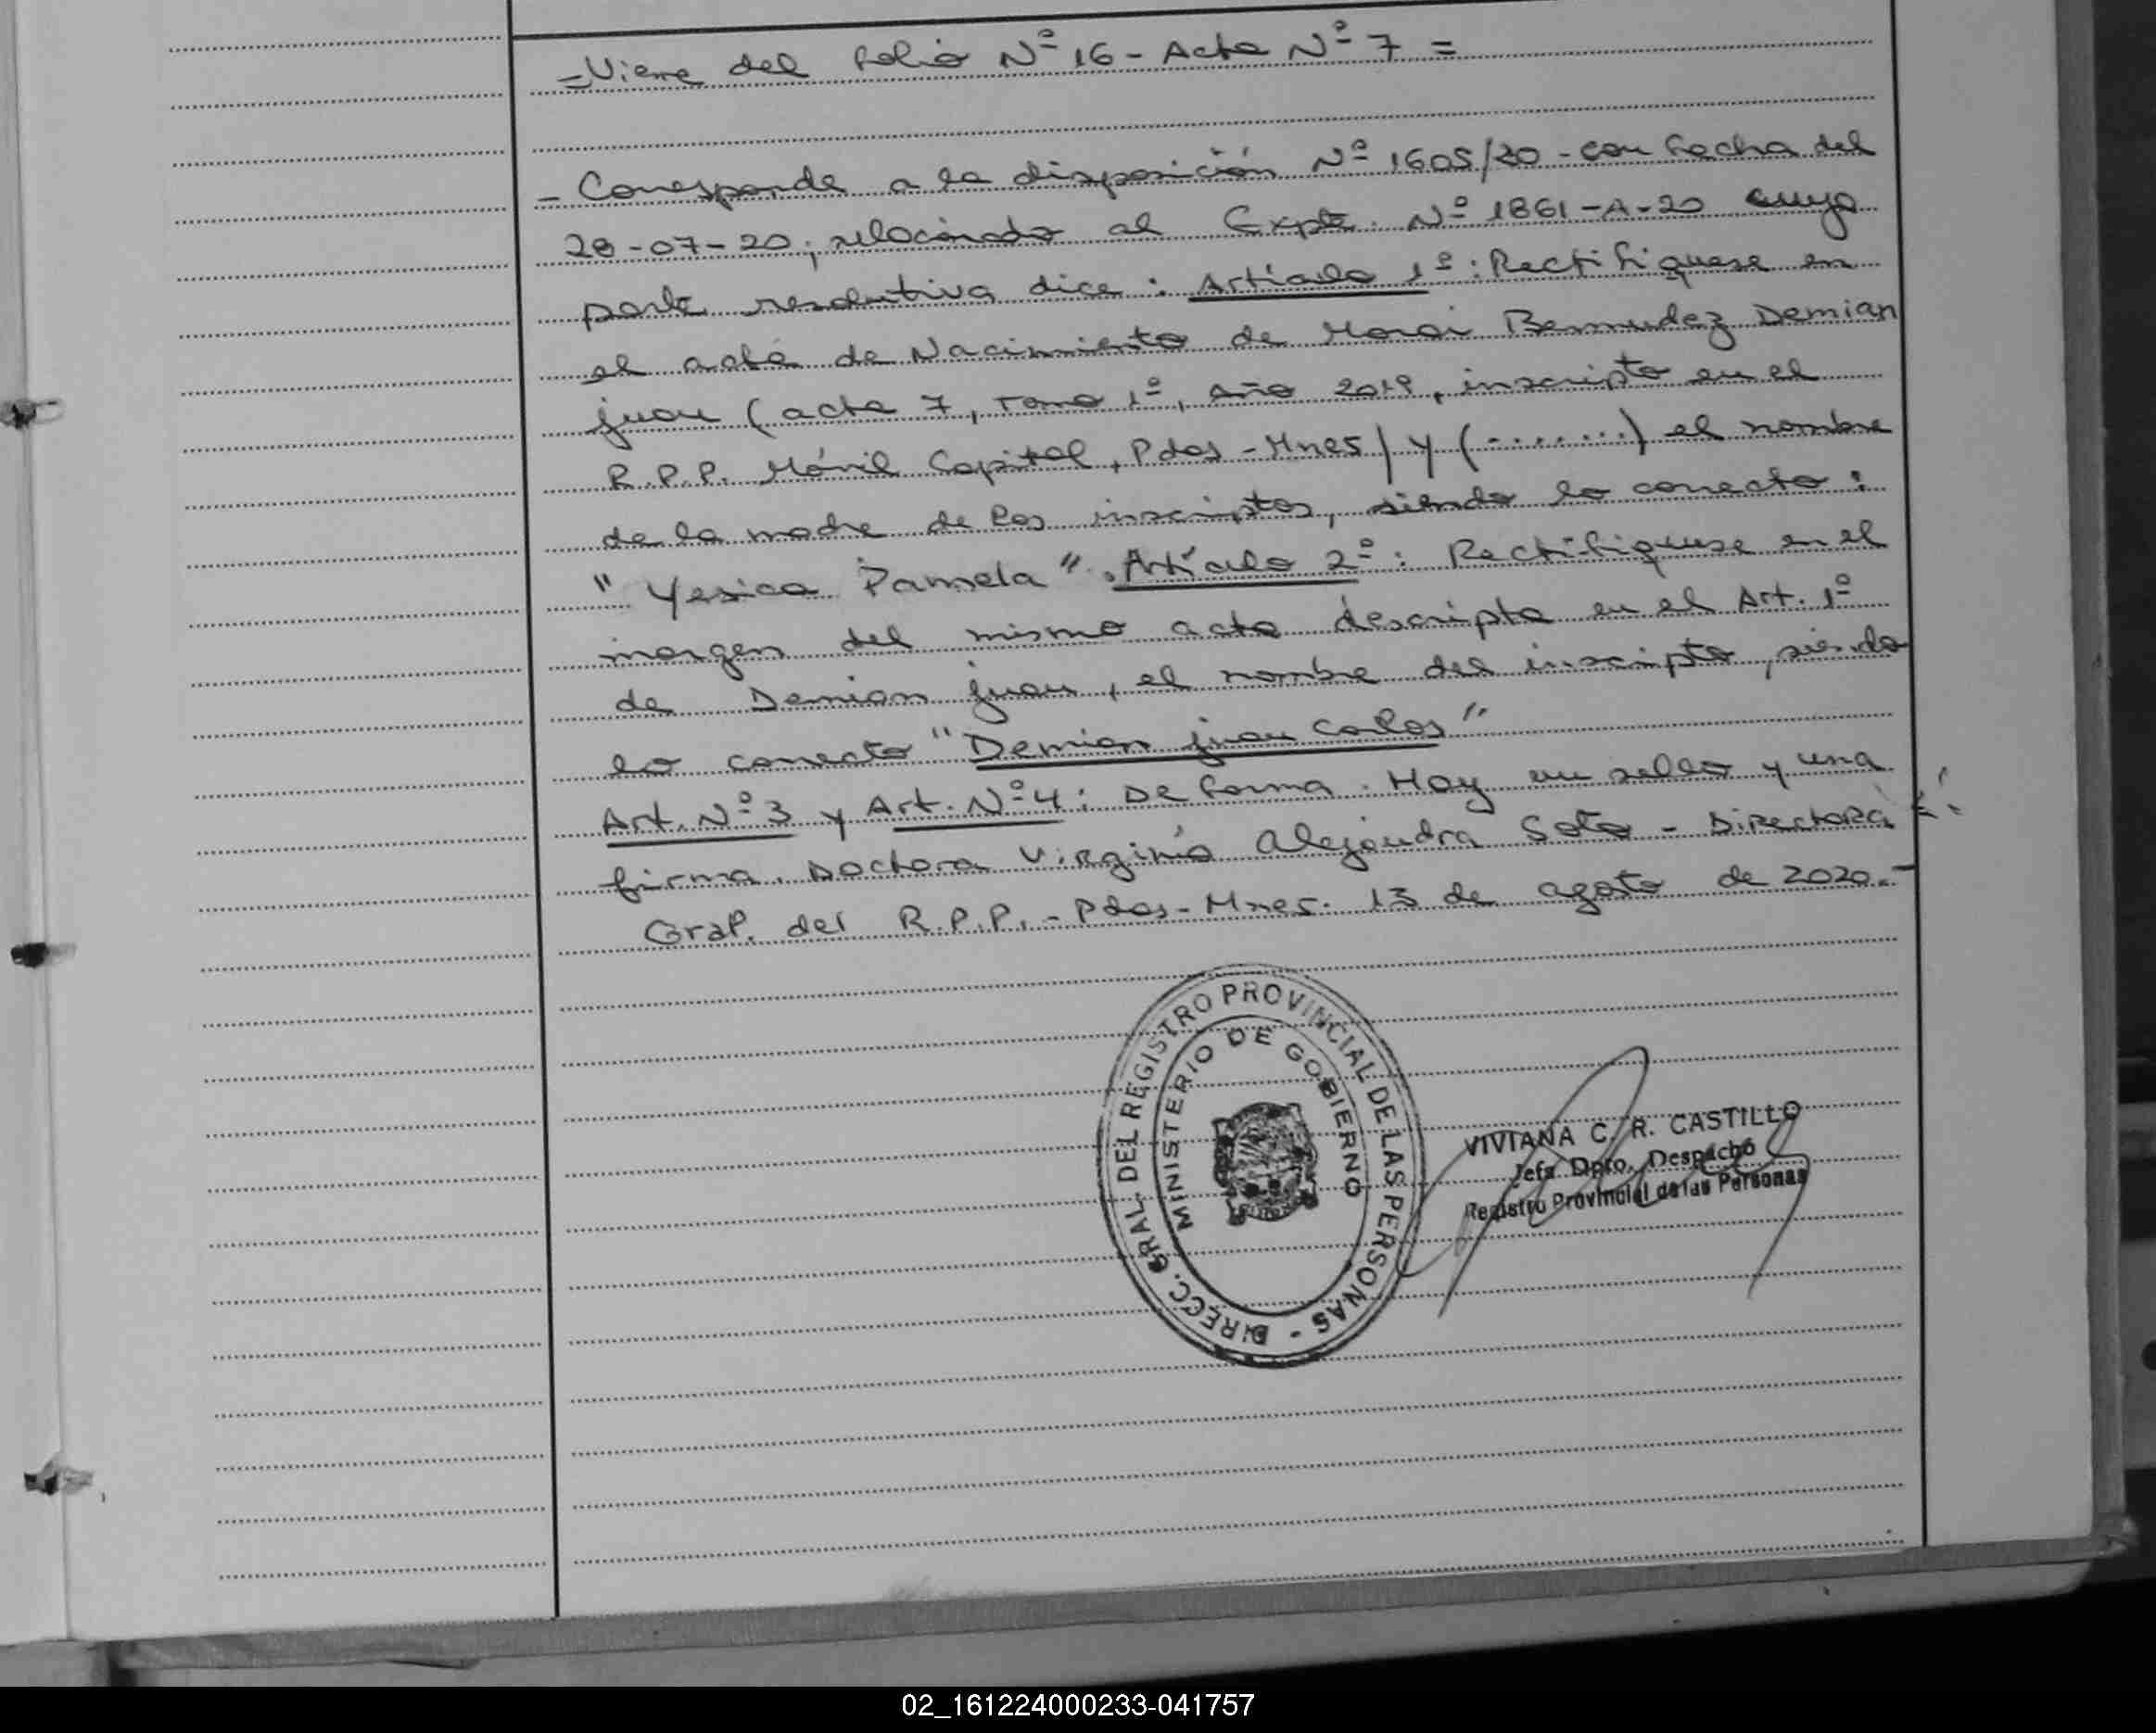 - Viene del folio Nº 16 - Acta Nº 7 =
- Corresponde a la disposición Nº 1605/20 - con fecha del
28-07-20; relacionado al Expte. Nº 1861-A-20 cuya
parte resolutiva dice: Artículo 1º: Rectifíquese en
el acta de Nacimiento de Bermudez Demian
juan (acta 7, Tomo 1º, Año 2019, inscripto en el
R.P.P. Móvil Capital, Pdas - Mnes) y (- . . . . . . .) el nombre
de la madre de los inscriptos, siendo lo correcto:
" Yesica Pamela". Artículo 2º: Rectifiquese en el
margen del mismo acta descripta en el Art. 1º
de Demian juan, el nombre del inscripto, siendo
lo correcto "Demian juan Carlos"
Art. Nº 3 y Art. Nº 4: De forma. Hay un sello y una
firma. Doctora Virginia Alejandra Soto - Directora
Gral. del R.P.P. - Pdas - Mnes. 13 de agosto de 2020.-
DIRECC. GRAL. DEL REGISTRO PROVINCIAL DE LAS PERSONAS -
MINISTERIO DE GOBIERNO
VIVIANA C. R. CASTILLO
Jefa Dpto. Despacho
Registro Provincial de las Personas
02_161224000233-041757